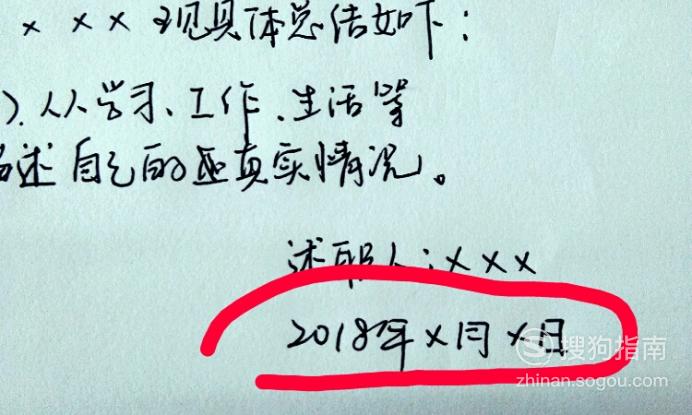 × × × 现具体总结如下：
）从学习、工作、生活等
述自己的真实情况。
述职人：×××
2018年×月×日
搜狗指南
zhinan.sogou.com